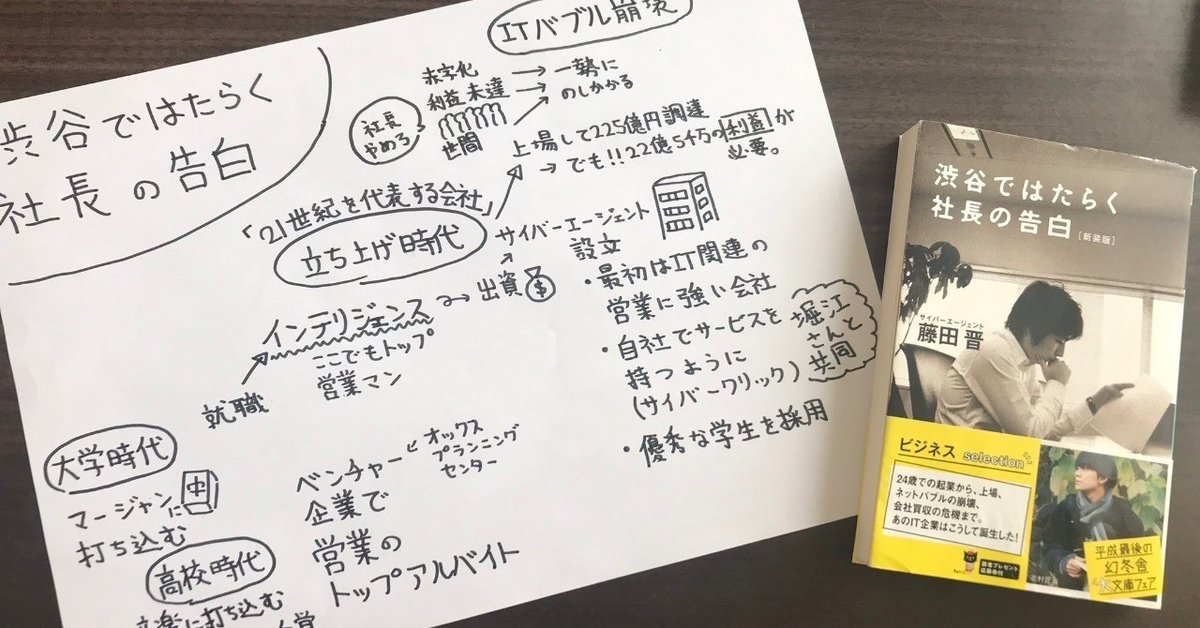 渋谷ではたらく
社長の告白
ITバブル崩壊
赤字化
利益未達
世間
→ 一勢に
→ のしかかる
社長
やめろ
上場して225億円調達
→ でも!!22億5千万の利益が
必要。
「21世紀を代表する会社」
立ち上げ時代
インテリジェンス
ここでもトップ
営業マン
就職
出資
$
サイバーエージェント
設立
・最初はIT関連の
営業に強い会社
・自社でサービスを
持つように
(サイバークリック)
堀江
さんと
共同
・優秀な学生を採用
大学時代
マージャンに
中
打ち込む
ベンチャー
企業で
営業の
トップアルバイト
オックス
プランニング
センター
高校時代
音楽に打ち込む
渋谷ではたらく
社長の告白
[新装版]
サイバーエージェント
藤田 晋
ビジネス selection
24歳での起業から、上場、
ネットバブルの崩壊、
会社買収の危機まで。
あのIT企業はこうして誕生した!
読者プレゼント
平成最後の
幻冬舎
大文庫フェア